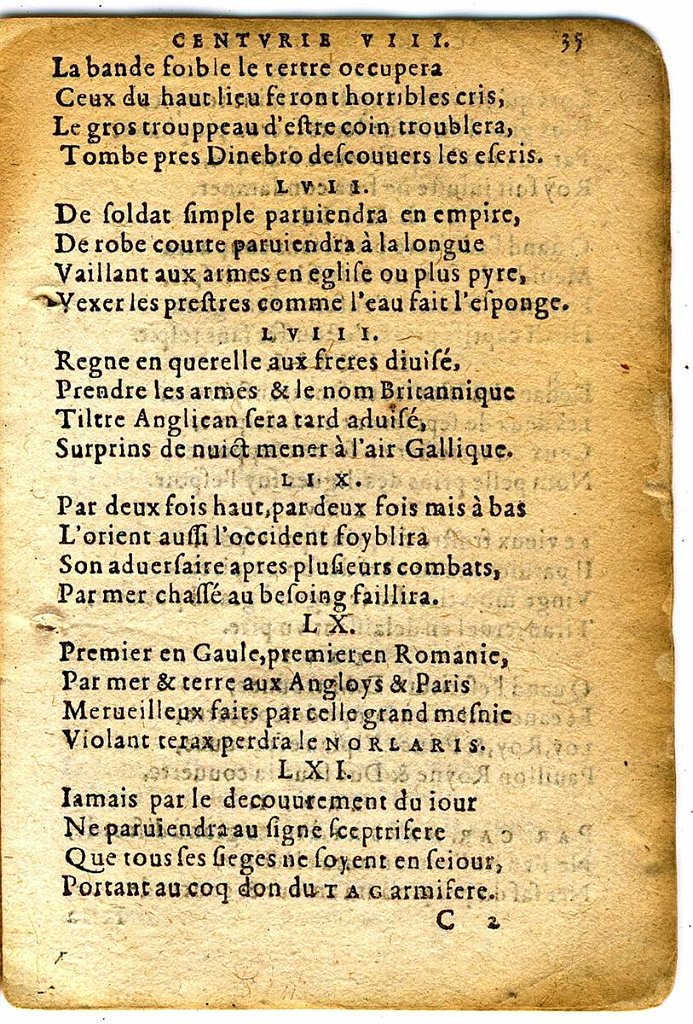 CENTVRIE VIII. 35
La bande foible le tertre occupera
Ceux du haut lieu feront horribles cris,
Le gros trouppeau d'eſtre coin troublera,
Tombe pres Dinebro deſcouuers les eſeris.
LVII.
De ſoldat ſimple paruiendra en empire,
De robe courte paruiendra à la longue
Vaillant aux armes en egliſe ou plus pyre,
Vexer les preſtres comme l'eau fait l'eſponge.
LVIII.
Regne en querelle aux freres diuiſé,
Prendre les armes & le nom Britannique
Tiltre Anglican ſera tard aduiſé,
Surprins de nuict mener à l'air Gallique.
LIX.
Par deux fois haut, par deux fois mis à bas
L'orient auſſi l'occident foyblira
Son aduerſaire apres pluſieurs combats,
Par mer chaſſé au beſoing faillira.
LX.
Premier en Gaule, premier en Romanie,
Par mer & terre aux Angloys & Paris
Merueilleux faits par celle grand meſnie
Violant terax perdra le NORLARIS.
LXI.
Iamais par le decouurement du iour
Ne paruiendra au ſigne ſceptrifere
Que tous ſes ſieges ne ſoyent en ſeiour,
Portant au coq don du TAG armifere.
C 2